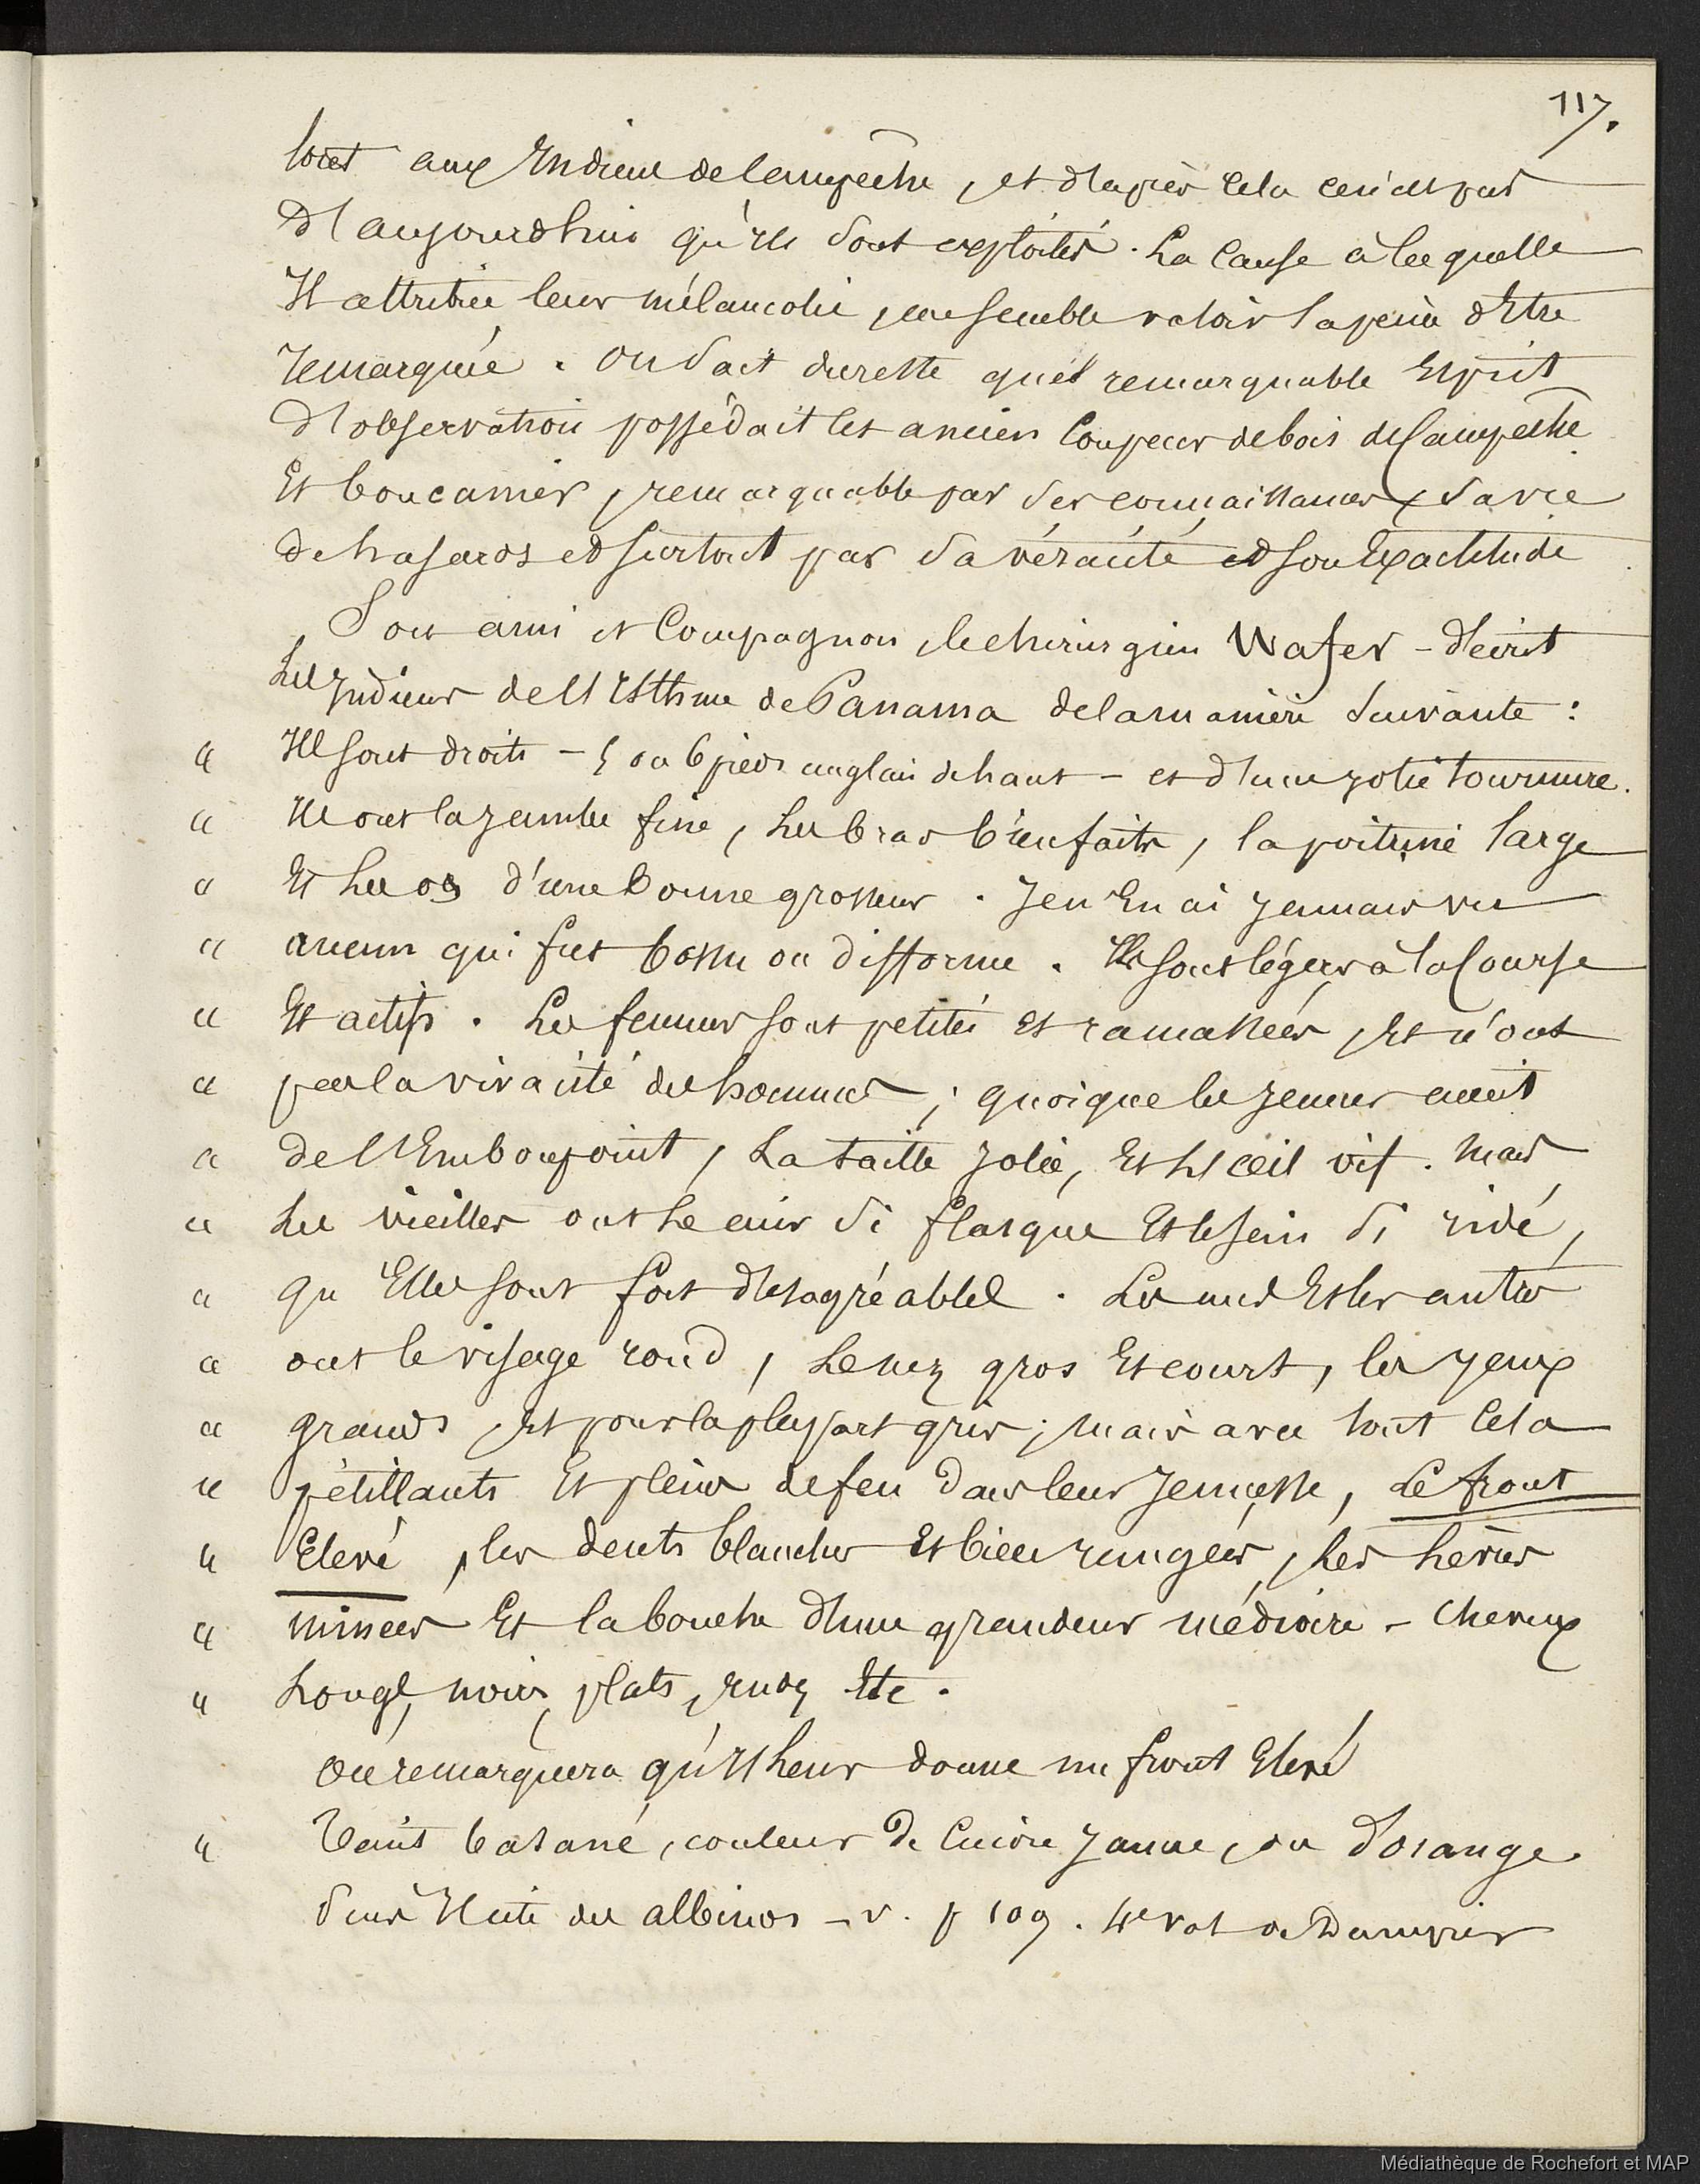 117.
tout aux Indiens de Campêche, et d'après cela ce n'est pas
d'aujourdhui qu'ils sont exploités. La cause à laquelle
Il attribue leur mélancolie, me semble valoir la peine d'Etre
remarquée. On sait dureste quel remarquable Esprit
d'observation possédait cet ancien Coupeur de bois de Campêche
Et boucanier, remarquable par ses connaissances, sa vie
de hasards et surtout par sa véracité et son Exactitude
Son ami et Compagnon, le chirurgien Wafer - décrit
Les Indiens de l'Isthme de Panama de la manière suivante :
" Ils sont droits - 5 ou 6 pieds anglais de haut - et d'une jolie tournure.
" Ils ont la jambe fine, les bras bien faits, la poitrine large
" Et les os d'une bonne grosseur. Je n'En ai jamais vu
" aucun qui fut bossu ou difforme. Ils sont légers à la Course
" Et actifs. Les femmes sont petites et ramassées, Et n'ont
" pas la vivacité des hommes ; quoique les jeunes aient
" de l'Embonpoint, La taille jolie, Et l'œil vif. Mais
" Les vieilles ont le cuir si flasque Et le sein si ridé,
" qu'Elles sont fort désagréables. Les uns Et les autres
" ont le visage rond, Le nez gros Et court, les yeux
" grands, Et pour la pluspart gris ; mais avec tout Cela
" pétillants Et pleins de feu dans leur Jeunesse, Le front
" Elevé, les dents blanches Et bien rangées, Les Lèvres
" minces Et la bouche d'une grandeur médiocre - Cheveux
" Longs, noirs, plats, rudes Etc.
On remarquera qu'Il leur donne un front Elevé
" Teint basané, couleur de Cuivre jaune, ou d'orange
Puis Il cite des albinos - v. p 109. 4e vol de Dampier
Médiathèque de Rochefort et MAP